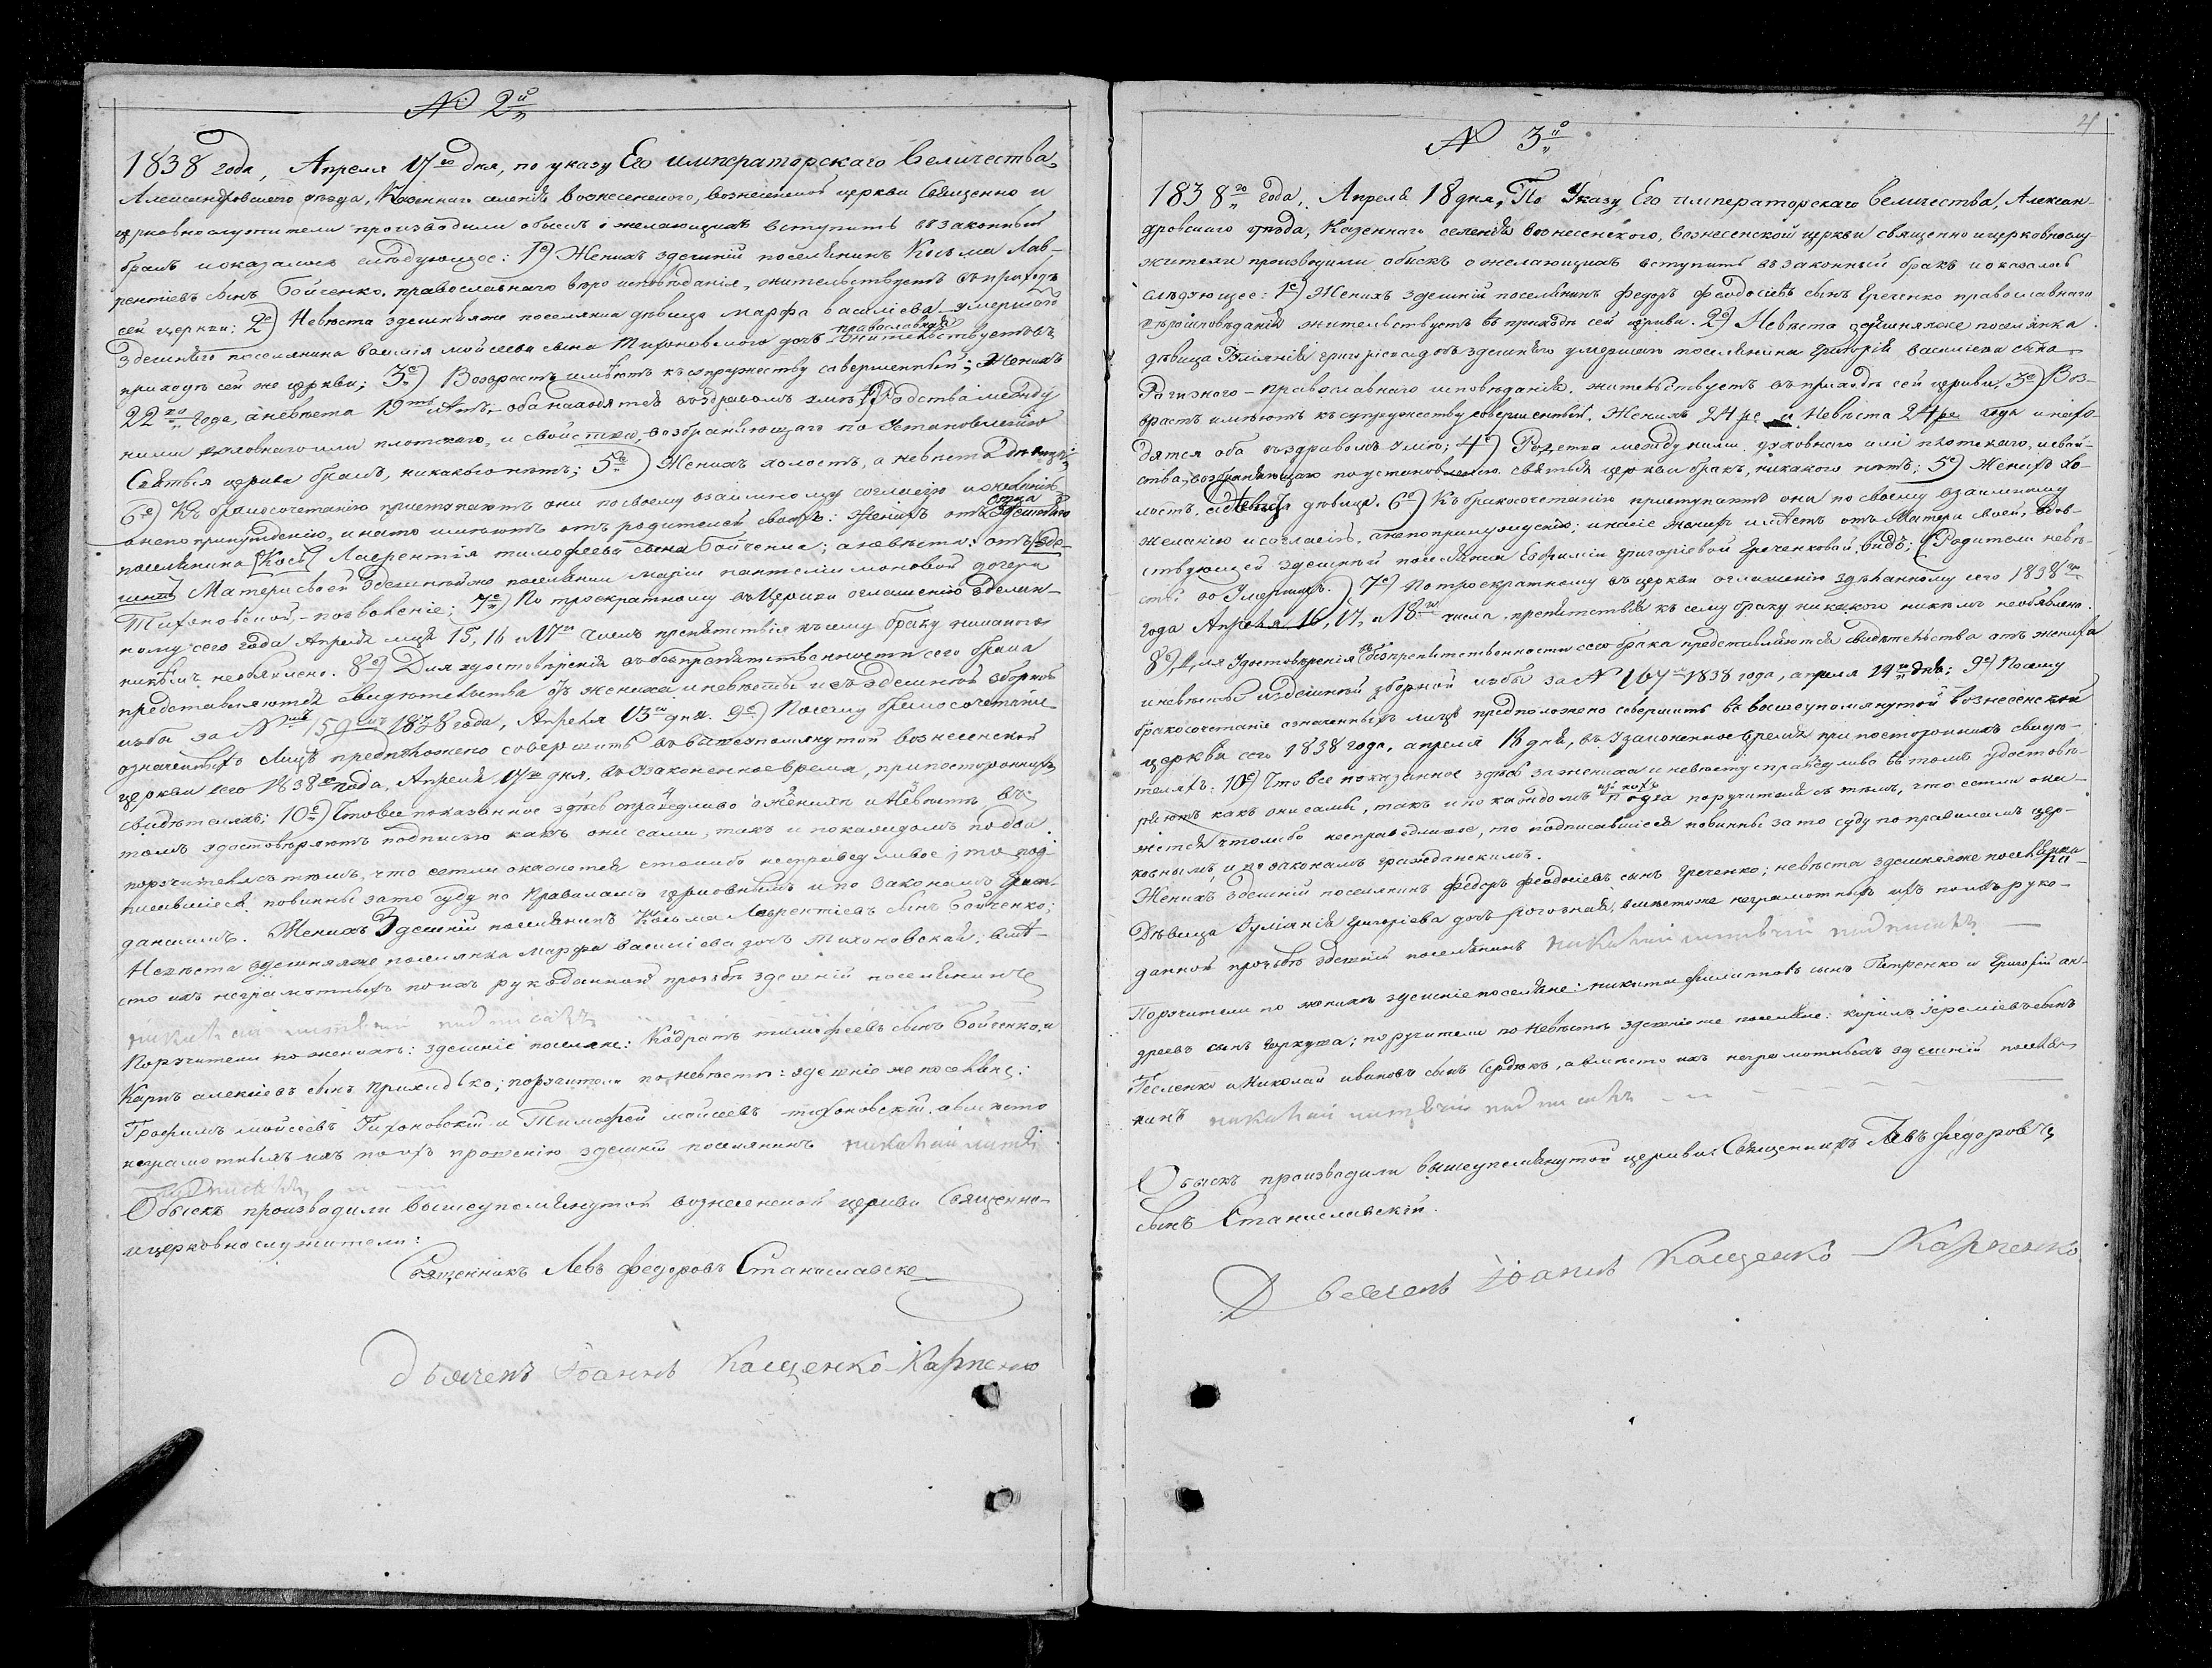 № 2й
1838 года, Апреля 17го дня, по указу Его императорскаго Величества
Александровскаго уезда, Казеннаго селенія вознесенского, вознесенской церкви Священно и
церковнослужители производили обыскъ о желающихъ вступить въ законный
бракъ и оказалось следующее: 1е) Женихъ здешній поселянинъ Косьма Лав-
рентіевъ сынъ Бойченко, православнаго веро исповѣданія, жительствуетъ въ приходѣ
сей церкви; 2е) Невѣста здешняяже поселянка дѣвица марфа василіева умершаго
здешнего поселянина василія мойсеева сына Тихоновского дочь православная жительствуетъ въ
приходѣ сей же церкви; 3е) Возрастъ имѣютъ къ супружеству совершенный; Женихъ
22хъ года, а невѣста 19ть лѣтъ, оба находятся въ здравомъ умѣ; 4) Родства между
ними духовнаго или плотскаго, и свойства, возбраняющаго по Установленію
Святыя церкви бракъ, никакого нѣтъ; 5е) Женихъ холостъ, а невѣста дѣвица;
6е) Къ бракосочетанію приступаютъ они по своему взаимному согласію и желанію
а не по принужденію, и на то имѣютъ отъ родителей своихъ: женихъ отъ отца здешнего
поселянина [Кось] Лаврентія тимофеева сына Бойченка; а невѣста: отъ здѣ-
шней Матери своей здешнейже поселянки маріи пантелимоновой дочери
Тихоновской, - позволеніе; 7е) По троекратному въ Церкви оглашенію здѣлан-
ному сего года Апреля мца 15, 16 и 17го числъ препятствія къ сему браку никакого
никѣмъ необявлено. 8е) Для удостовѣренія въ безпрепятственности сего брака
представляются свидетельства о женихѣ и невѣсте изъ здешней зборной
избы за №мъ 159мъ 1838 года, Апреля 13го дня. 9е) Посему бракосочетаніе
означенныхъ лицъ предположено совершить въ вышеупомянутой вознесенской
церкви сего 1838го года, Апреля 17го дня, въ Узаконенное время, при постороннихъ
свидетеляхъ; 10е) Что все показанное здѣсь справедливо о женихѣ и Невѣсте въ
томъ удостовѣряютъ подписью какъ они сами, такъ и по каждомъ по два
поручителя съ тѣмъ, что если окажется чтолибо несправедливое, то под-
писавшіеся повинны зато суду по Правиламъ церковнымъ и по законамъ граж-
данскимъ. Женихъ Здешній поселянинъ Козьма Лаврентіевъ сынъ Бойченко;
Невѣста здешняяже поселянка марфа василіева дочь Тихоновская; вмѣ-
сто ихъ неграмотныхъ по ихъ рукоданной прозьбѣ здешній поселянинъ
подписалъ
Поручители по женихѣ: здешніе поселяне: Кодратъ тимофеевъ сынъ Бойченко, и
Карпъ алексіевъ сынъ Прихидько; поручители по невѣсте: здешніе же поселяне:
Трофимъ мойсеевъ Тихоновскій и Тимофей мойсеевъ тихоновскій, авместо
неграмотныхъ ихъ по ихъ прошенію здешній поселянинъ
подписалъ
Обыскъ производили вышеупомянутой вознесенской церкви Священно-
и церковнослужители:
Священникъ Левъ федоровъ Станиславскій
Дьячекъ Іоаннъ Кащенко-Карпенко
4
№ 3й
1838го года, Апреля 18 дня, По Указу Его императорскаго величества, Алексан-
дровскаго уезда, Казеннаго селенія вознесенского, вознесенской церкви священно и церковнослу-
жители производили обыскъ о желающихъ вступить въ законный бракъ и оказалось
слѣдующее: 1е) Женихъ здешній поселянинъ федоръ феодосіевъ сынъ Греченко православнаго
вѣроисповѣданія жительствуетъ въ приходѣ сей церкви. 2е) Невѣста здешняяже поселянка
дѣвица Гликерія григоріева дочь здешнего умершаго поселянина Григорія василіева сына
Рогизного - Православнаго исповѣданія. жительствуетъ въ приходѣ сей церкви, 3е) Воз-
растъ имѣютъ къ супружеству совершенный. Женихъ 24ре а Невѣста 24ре года и нахо-
дятся оба въ здравомъ умѣ; 4е) Родства между ними духовнаго или плотскаго, и свой-
ства, возбраняющаго по установленію святыя церкви бракъ, никакого нѣтъ; 5е) Женихъ Хо-
лостъ, а Невѣста дѣвица. 6е) Къ бракосочетанію приступаютъ они по своему взаимному
желанію и согласію, а непопринужденію; и насіе женихъ имѣетъ отъ Матери своей, вдов-
ствующей здешней поселянки Евфиміи григоріевой Греченковой, видъ; Родители невѣ-
сты во Умерших. 7е) По троекратному въ церкви оглашенію здѣланному сего 1838го
года Апреля 16, 17, и 18го числа, препятствія къ сему браку никакого никѣмъ необявлено.
8е) Для Удостовѣренія въ безпрепятственности сего брака представляются свидетельства отъ жениха
и невѣсты изъ здешней зборной избы за № 164мъ 1838 года, апреля 14го дня; 9е) Посему
бракосочетаніе означенныхъ лицъ предположено совершить въ вышеупомянутой вознесенской
церкви сего 1838 года, апреля 18 дня, въ Узаконенное время при постороннихъ свидѣ-
теляхъ. 10е) Что все показанное здѣсь за жениха и невѣсту справедливо въ томъ удостовѣ-
ряютъ какъ они сами, такъ и по каждомъ изъ нихъ по два поручителя съ тѣмъ, что если ока-
жется чтолибо несправедливое, то подписавшіеся повинны за то суду по правиламъ цер-
ковнымъ и по законамъ гражданскимъ.
Женихъ здешній поселянинъ федоръ феодосіевъ сынъ Греченко; невѣста здешняяже поселянка
Дѣвица григоріева дочь рогозная, вмѣстоже неграмотныхъ ихъ по ихъ руко-
данной прозьбѣ здешній поселянинъ подписалъ
Поручители по женихѣ здешніе поселяне: никита филиповъ сынъ Петренко и Григорій ан-
дреевъ сынъ Горкуша; поручители по Невѣсте здешніеже поселяне: кирилъ іереміевъ сынъ
Тесленко и Николай ивановъ сынъ Сердюкъ, авместо ихъ неграмотныхъ здешній поселя-
нинъ подписалъ
Обыскъ производили вышеупомянутой церкви: Священникъ Левъ федоровъ
сынъ Станиславскій.
Дьячекъ Іоаннъ Кащенко-Карпенко